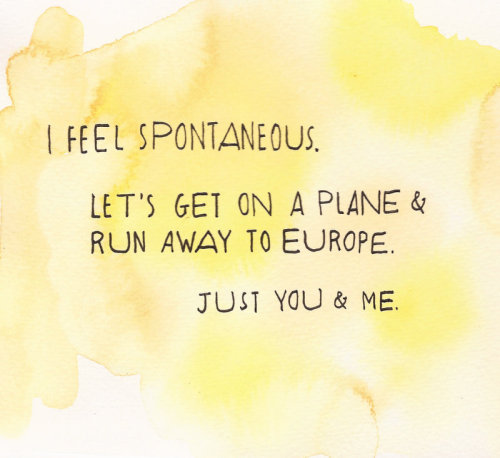 I FEEL SPONTANEOUS.
LET'S GET ON A PLANE &
RUN AWAY TO EUROPE.
JUST YOU & ME.